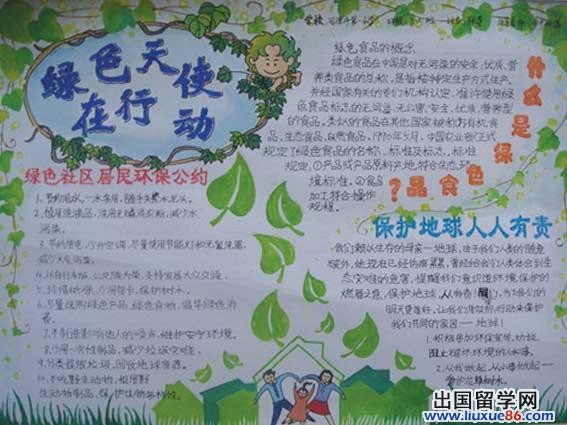 学校
绿色天使
在行动
绿色社区居民环保公约
1.节约用水,一水多用,随手关
2.慎用洗洁品,选用无磷洗衣粉,减少水
污染。
3.节约用电,少开空调,尽量使用节能灯和
减少大气污染。
4.以自行车
5.珍惜纸张
6.尽量选购绿色产品,绿色食物,倡导绿色消
费。
7.不制造影响他人的噪声,维护安宁环境。
8.少用一次性制品,减少垃圾灾难。
9.分类投放垃圾,回收地球资源。
10.不吃野生动物,拒用野
生动物制品,保护生物多样性。
绿色食品的概念
绿色食品在中国是对无污染的安全、优质、营
养类食品的总称,是指按特定生产方式生产,
并经国家有关的专门机构认定,准许使用绿
色食品标志的无污染、无公害、安全、优质、营养型
的食品。类似的食品在其他国家被称为有机食
品,生态食品,自然食品。1990年5月,中国农业部正式
规定了绿色食品的名称、标准及标志。标准
规定:①产品或产品原料产地符合生态环
境标准。②
加工符合操作
规程。
什么是绿色食品?
保护地球人人有责
我们赖以生存的母亲——地球,由于我们人类的随意
破坏,她现在已经伤痕累累,曾经给我们人类体会到生
态灾难性的危害,提醒我们意识到环境保护的
燃眉之急,保护地球,人人有责!
明天更美好,让我们用
我们共同的家园——地球!
1.积极参加环保宣传
2.从我做起,从小事做起——
爱护花草树木。
出国留学网
www.liuxue86.com